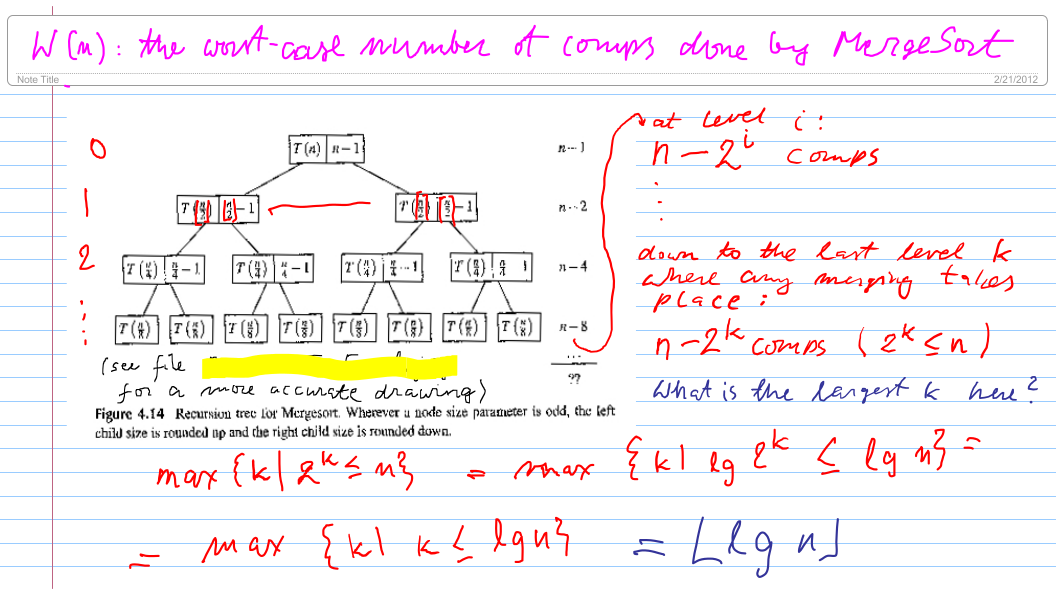 W(n): the worst-case number of comps done by MergeSort
Note Title
2/21/2012
0 T(n) n-1 n-1
1 T(⌈n/2⌉) ⌈n/2⌉-1 T(⌊n/2⌋) ⌊n/2⌋-1 n-2
2 T(n/4) n/4-1 T(n/4) n/4-1 T(n/4) n/4-1 T(n/4) n/4 1 n-4
⋮ T(n/8) T(n/8) T(n/8) T(n/8) T(n/8) T(n/8) T(n/8) T(n/8) n-8
...
??
(see file
for a more accurate drawing)
Figure 4.14 Recursion tree for Mergesort. Wherever a node size parameter is odd, the left
child size is rounded up and the right child size is rounded down.
at level i:
n - 2^i comps
⋮
down to the last level k
where any merging takes
place:
n - 2^k comps (2^k ≤ n)
What is the largest k here?
max {k | 2^k ≤ n} = max {k | lg 2^k ≤ lg n} =
= max {k | k ≤ lg n} = ⌊lg n⌋